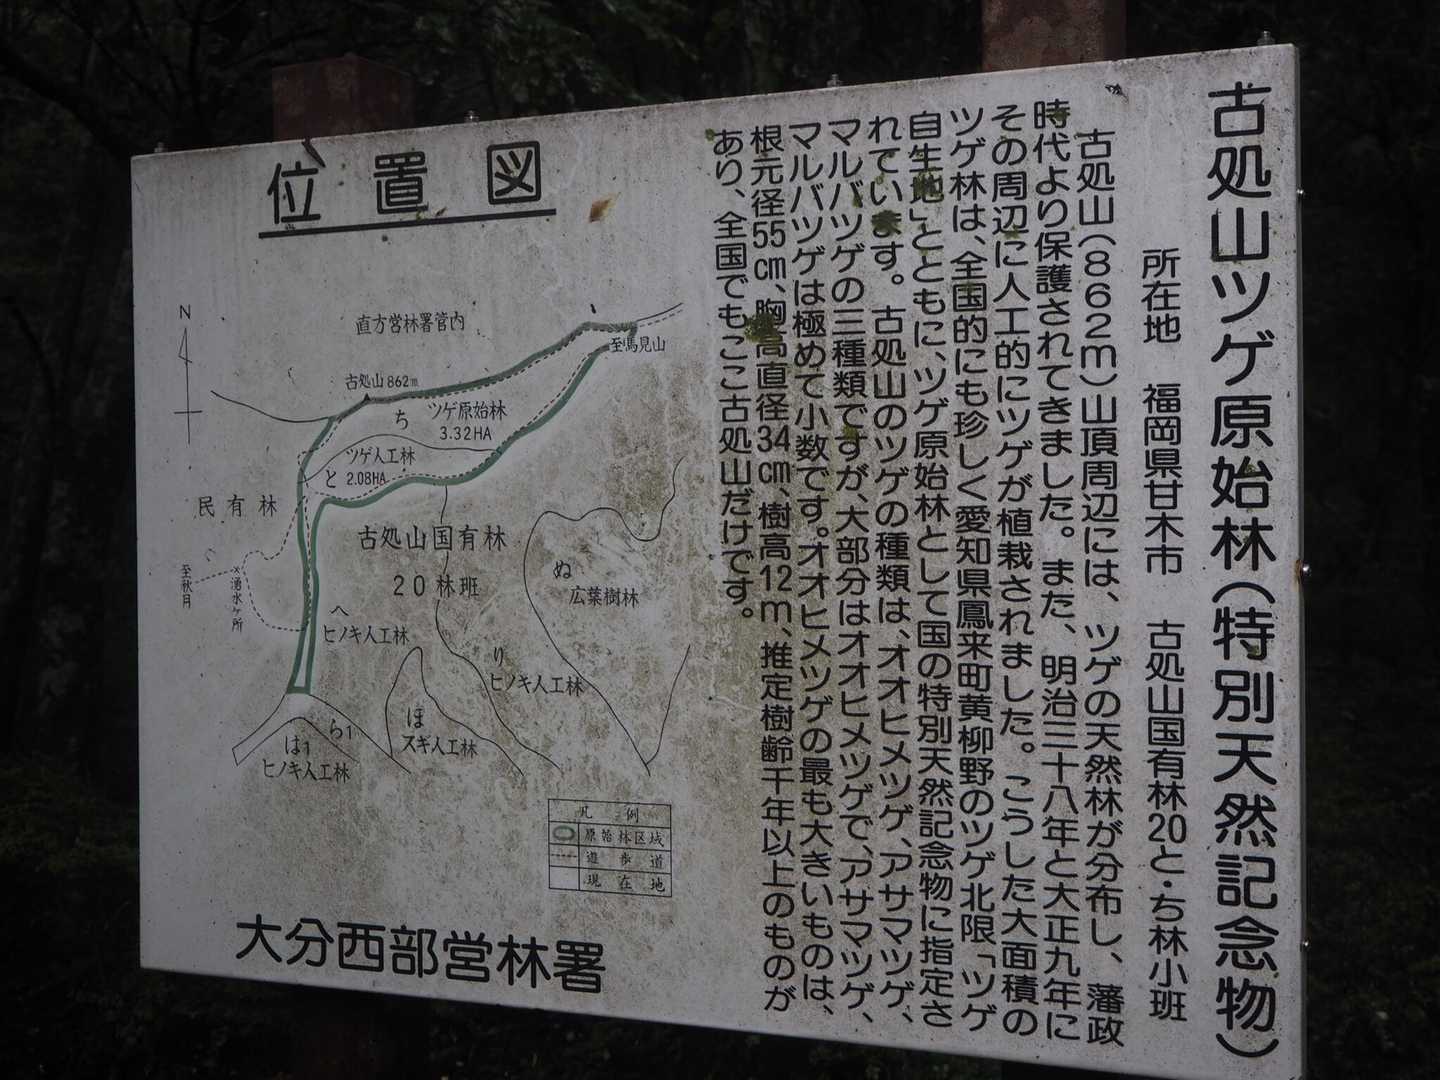 古処山ツゲ原始林(特別天然記念物)
所在地 福岡県甘木市 古処山国有林20と・ち林小班
古処山(862m)山頂周辺には、ツゲの天然林が分布し、藩政
時代より保護されてきました。また、明治三十八年と大正九年に
その周辺に人工的にツゲが植栽されました。こうした大面積の
ツゲ林は、全国的にも珍しく愛知県鳳来町黄柳野のツゲ北限「ツゲ
自生地」とともに、ツゲ原始林として国の特別天然記念物に指定さ
れています。古処山のツゲの種類は、オオヒメツゲ、アサマツゲ、
マルバツゲの三種類ですが、大部分はオオヒメツゲで、アサマツゲ、
マルバツゲは極めて小数です。オオヒメツゲの最も大きいものは、
根元径55cm、胸高直径34cm、樹高12m、推定樹齢千年以上のものが
あり、全国でもここ古処山だけです。
位置図
N
直方営林署管内
至馬見山
古処山862m
ち
ツゲ原始林
3.32HA
ツゲ人工林
と 2.08HA
民有林
古処山国有林
20林班
至秋月
湧水ヶ所
ぬ
広葉樹林
へ
ヒノキ人工林
り
ヒノキ人工林
ほ
スギ人工林
ら1
は1
ヒノキ人工林
凡例
原始林区域
遊歩道
現在地
大分西部営林署